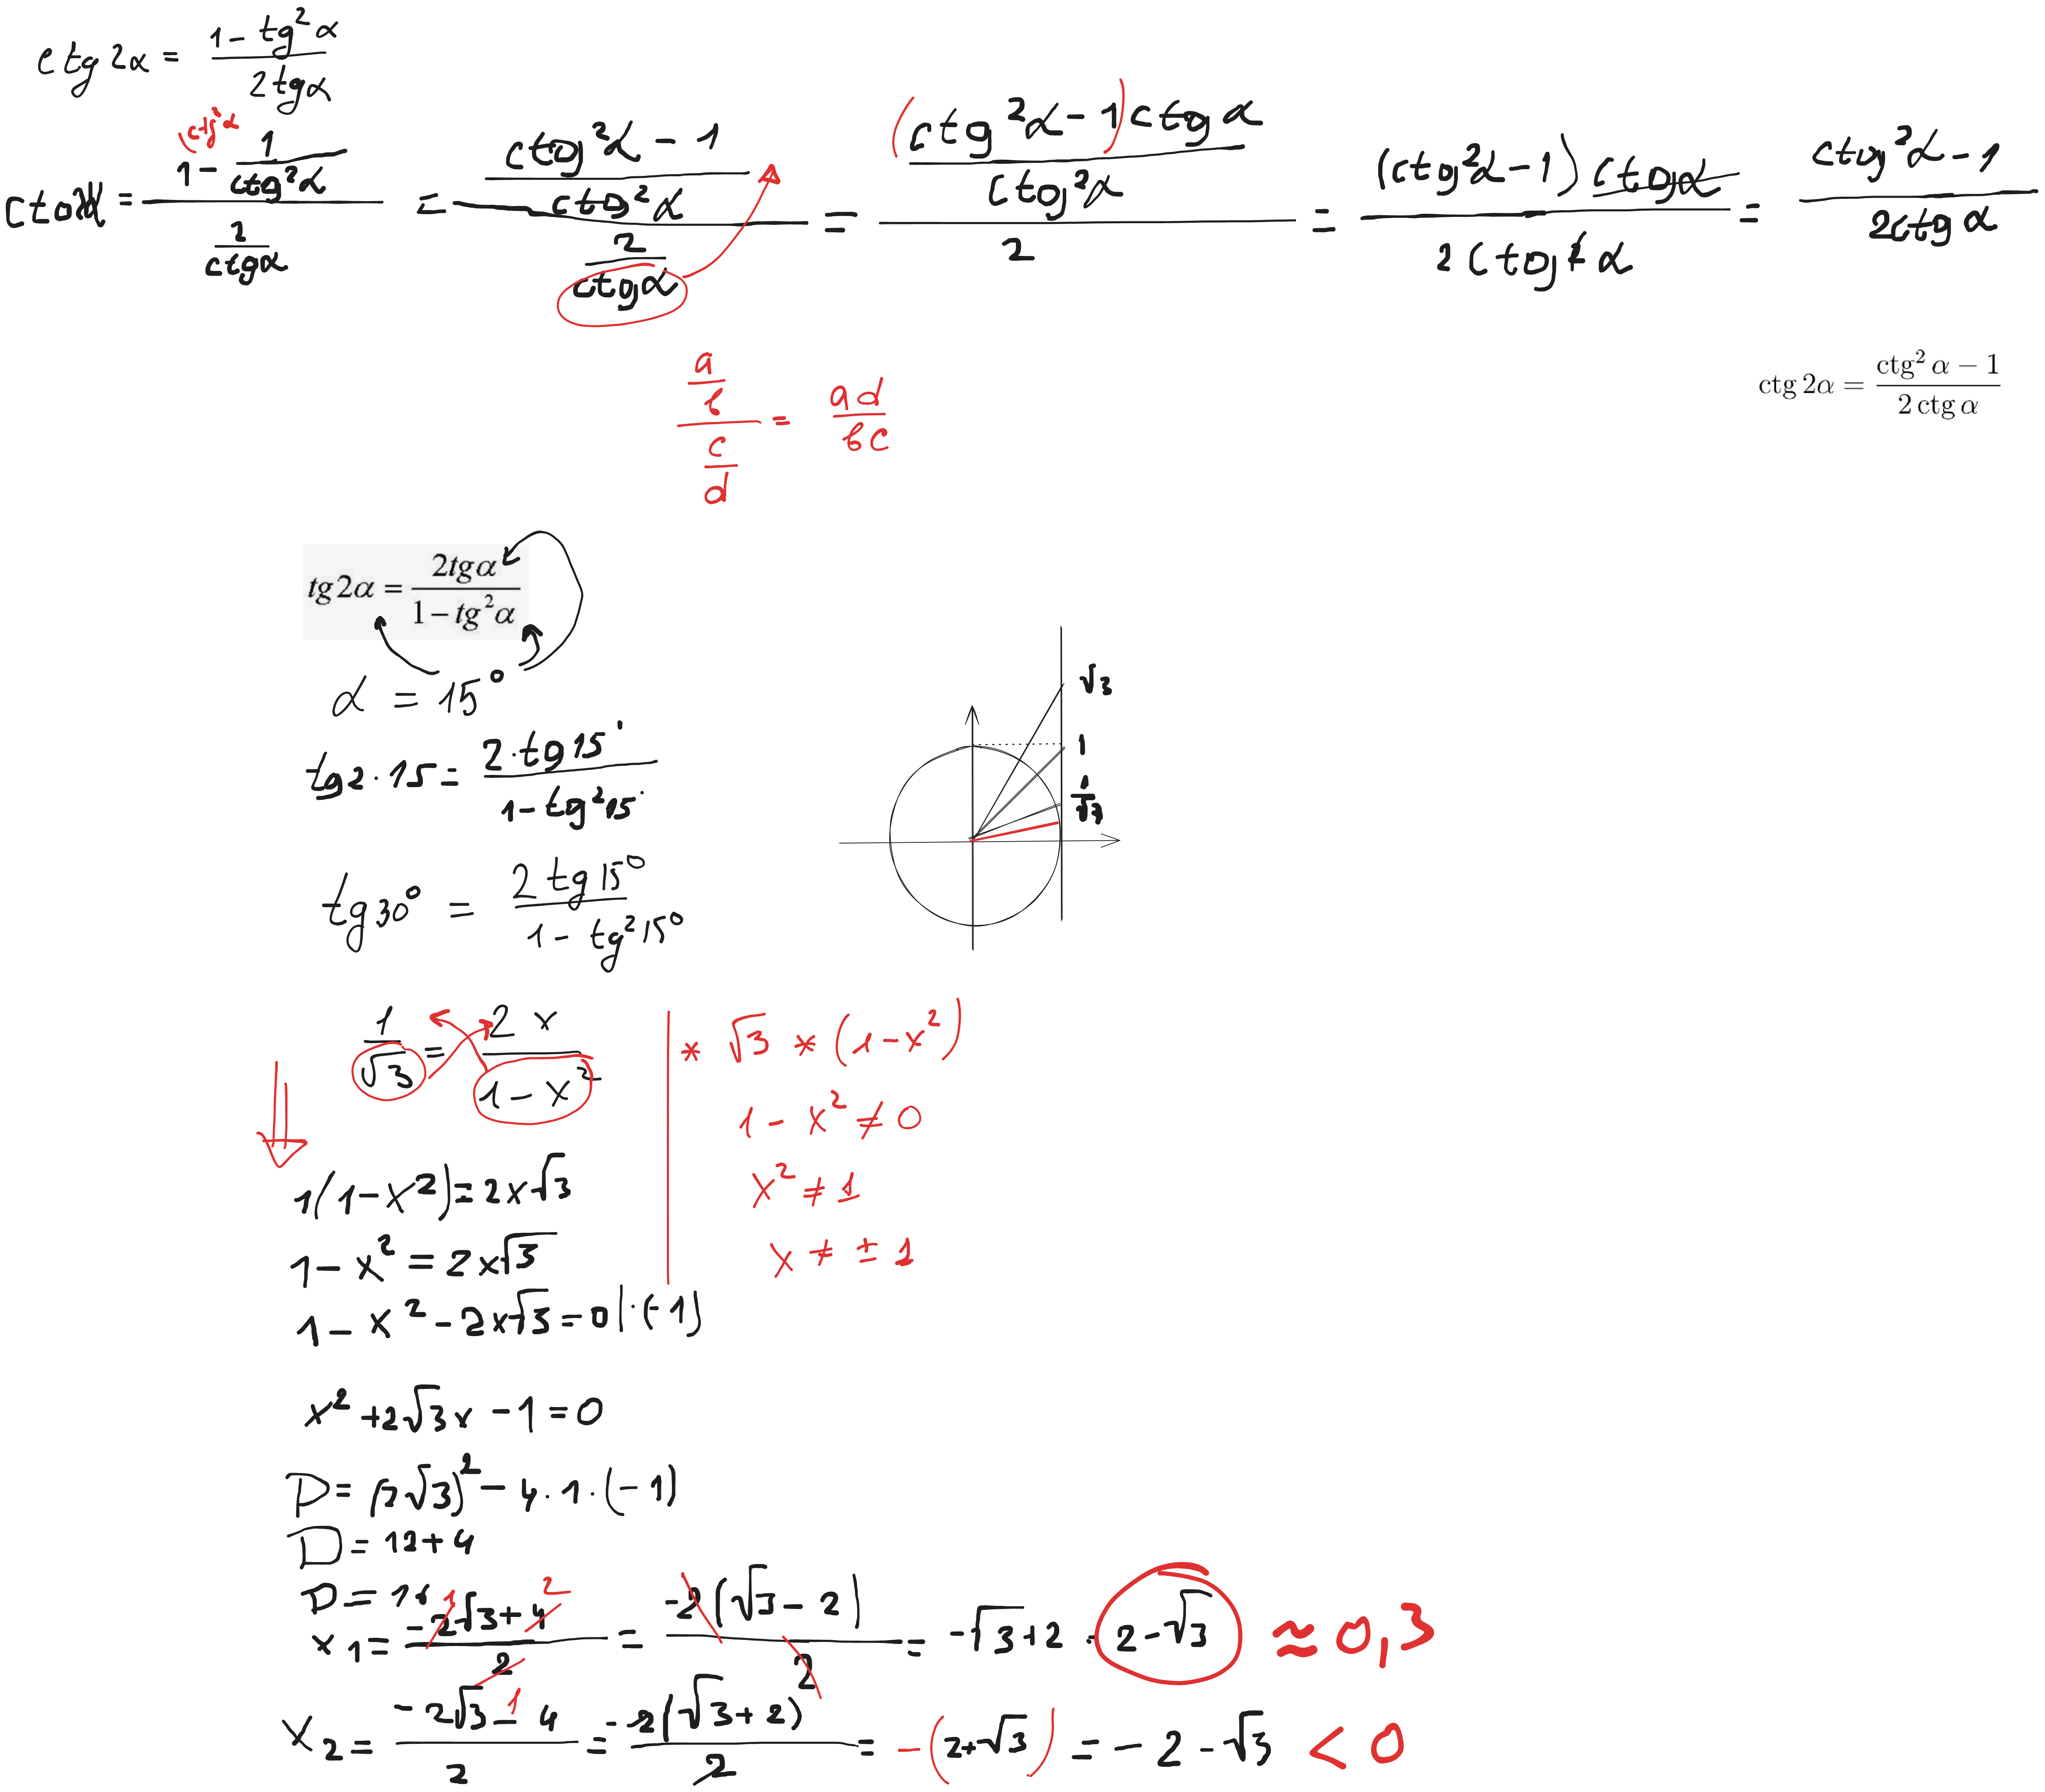 ctg 2α = (1 - tg²α)/(2 tgα)
ctg²α
ctg2α = (1 - 1/ctg²α)/(2/ctgα) = ((ctg²α - 1)/ctg²α)/(2/ctgα) = ((ctg²α - 1)ctgα/ctg²α)/2 = (ctg²α - 1)ctgα/(2ctg²α) = (ctg²α - 1)/(2ctgα)
ctg 2α = (ctg² α − 1)/(2 ctg α)
(a/b)/(c/d) = ad/bc
tg2α = 2tgα/(1 − tg²α)
α = 15°
tg2·15 = 2·tg15°/(1 - tg²15°)
tg30° = 2 tg15°/(1 - tg²15°)
√3
1
1/√3
1/√3 = 2x/(1 - x²) | * √3 * (1 - x²)
1 - x² ≠ 0
x² ≠ 1
x ≠ ± 1
1(1-x²) = 2x√3
1 - x² = 2x√3
1 - x² - 2x√3 = 0 |·(-1)
x² + 2√3x - 1 = 0
D = (2√3)² - 4·1·(-1)
D = 12 + 4
D = 16
x1 = (-2√3 + 4)/2 = -2(√3 - 2)/2 = -√3 + 2 = 2 - √3 ≈ 0,3
1 2
1
x2 = (-2√3 - 4)/2 = -2(√3 + 2)/2 = -(2+√3) = -2 - √3 < 0